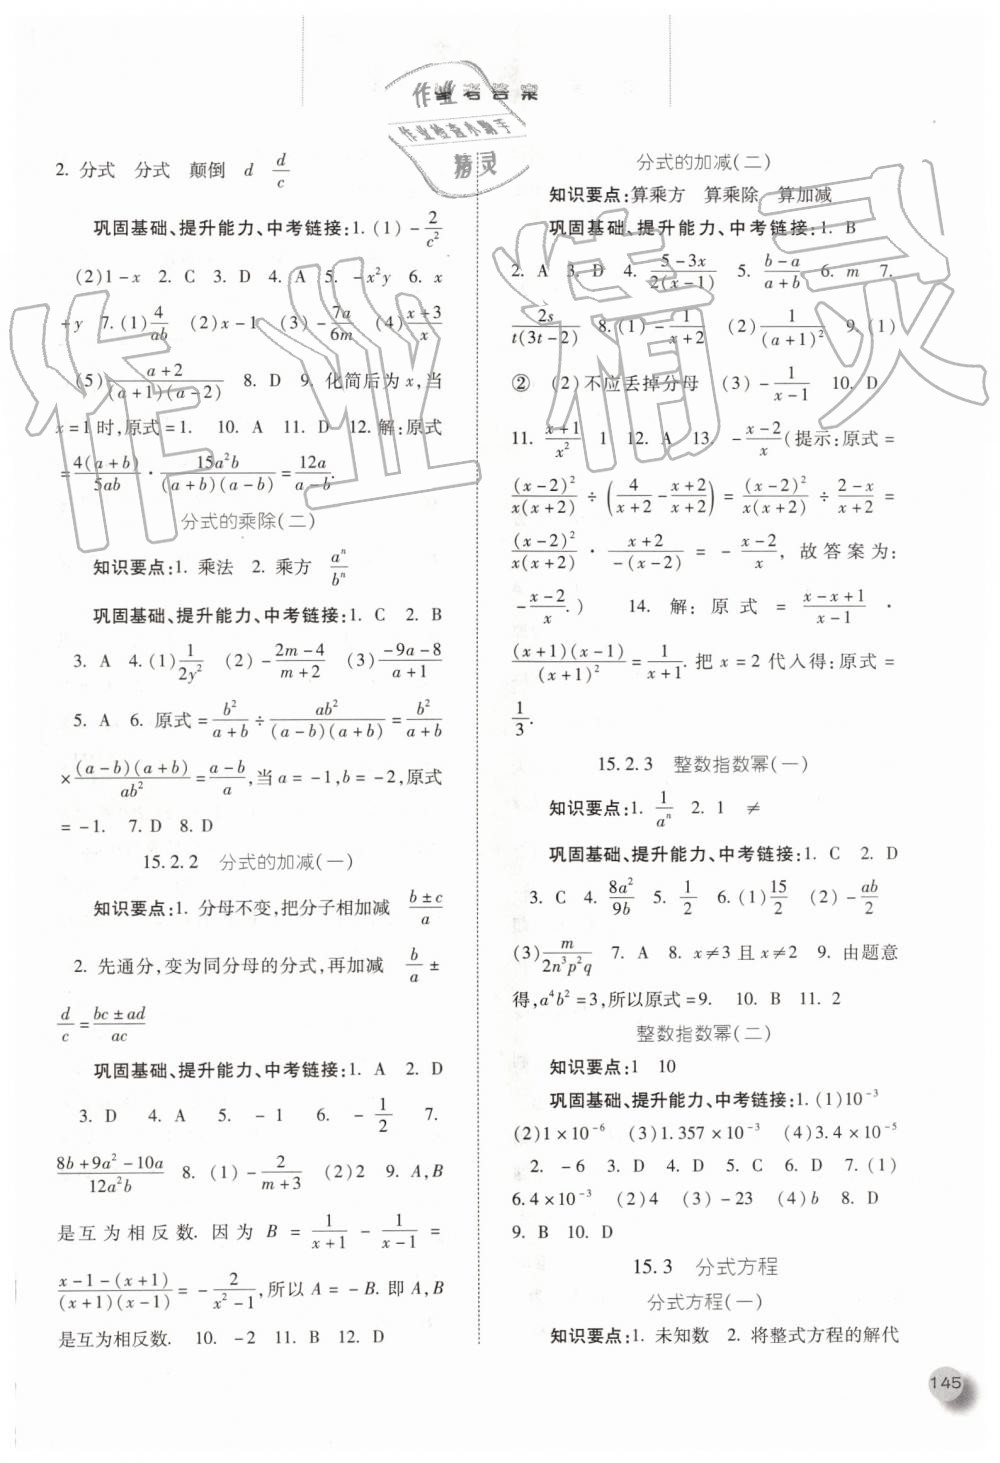 参考答案
作业
作业检查小助手
精灵
2. 分式 分式 颠倒 d d/c
巩固基础、提升能力、中考链接:1. (1) -2/c²
(2)1-x 2. C 3. D 4. A 5. -x²y 6. x
+y 7. (1) 4/ab (2)x-1 (3) -7a/6m (4) (x+3)/x
(5) (a+2)/((a+1)(a-2)) 8. D 9. 化简后为x,当
x=1时,原式=1. 10. A 11. D 12. 解:原式
=4(a+b)/5ab · 15a²b/((a+b)(a-b)) = 12a/(a-b).
分式的乘除(二)
知识要点:1. 乘法 2. 乘方 aⁿ/bⁿ
巩固基础、提升能力、中考链接:1. C 2. B
3. A 4. (1) 1/2y² (2) -(2m-4)/(m+2) (3) (-9a-8)/(a+1)
5. A 6. 原式=b²/(a+b) ÷ ab²/((a-b)(a+b)) = b²/(a+b)
×(a-b)(a+b)/ab² = (a-b)/a,当a=-1,b=-2,原式
=-1. 7. D 8. D
15.2.2 分式的加减(一)
知识要点:1. 分母不变,把分子相加减 (b±c)/a
2. 先通分,变为同分母的分式,再加减 b/a ±
d/c = (bc±ad)/ac
巩固基础、提升能力、中考链接:1. A 2. D
3. D 4. A 5. -1 6. -1/2 7.
(8b+9a²-10a)/12a²b 8. (1) -2/(m+3) (2)2 9. A,B
是互为相反数. 因为 B = 1/(x+1) - 1/(x-1) =
(x-1-(x+1))/((x+1)(x-1)) = -2/(x²-1),所以A=-B. 即A,B
是互为相反数. 10. -2 11. B 12. D
分式的加减(二)
知识要点:算乘方 算乘除 算加减
巩固基础、提升能力、中考链接:1. B
2. A 3. D 4. (5-3x)/(2(x-1)) 5. (b-a)/(a+b) 6. m 7.
2s/(t(3t-2)) 8. (1) -1/(x+2) (2) 1/(a+1)² 9. (1)
② (2)不应丢掉分母 (3) -1/(x-1) 10. D
11. (x+1)/x² 1 12. A 13. -(x-2)/x(提示:原式=
(x-2)²/(x(x+2)) ÷ (4/(x+2) - (x+2)/(x+2)) = (x-2)²/(x(x+2)) ÷ (2-x)/(x+2) =
(x-2)²/(x(x+2)) · (x+2)/(-(x-2)) = -(x-2)/x, 故答案为:
-(x-2)/x.) 14. 解:原式 = (x-x+1)/(x-1) ·
(x+1)(x-1)/(x+1)² = 1/(x+1). 把x=2代入得:原式=
1/3.
15.2.3 整数指数幂(一)
知识要点:1. 1/aⁿ 2. 1 ≠
巩固基础、提升能力、中考链接:1. C 2. D
3. C 4. 8a²/9b 5. 1/2 6. (1) 15/2 (2) -ab/2
(3) m/(2n³p²q) 7. A 8. x≠3且x≠2 9. 由题意
得,a⁴b²=3,所以原式=9. 10. B 11. 2
整数指数幂(二)
知识要点:1 10
巩固基础、提升能力、中考链接:1. (1)10⁻³
(2)1×10⁻⁶ (3)1.357×10⁻³ (4)3.4×10⁻⁵
2. -6 3. D 4. D 5. C 6. D 7. (1)
6.4×10⁻³ (2)4 (3)-23 (4)b 8. D
9. B 10. D
15.3 分式方程
分式方程(一)
知识要点:1. 未知数 2. 将整式方程的解代
145
作业精灵